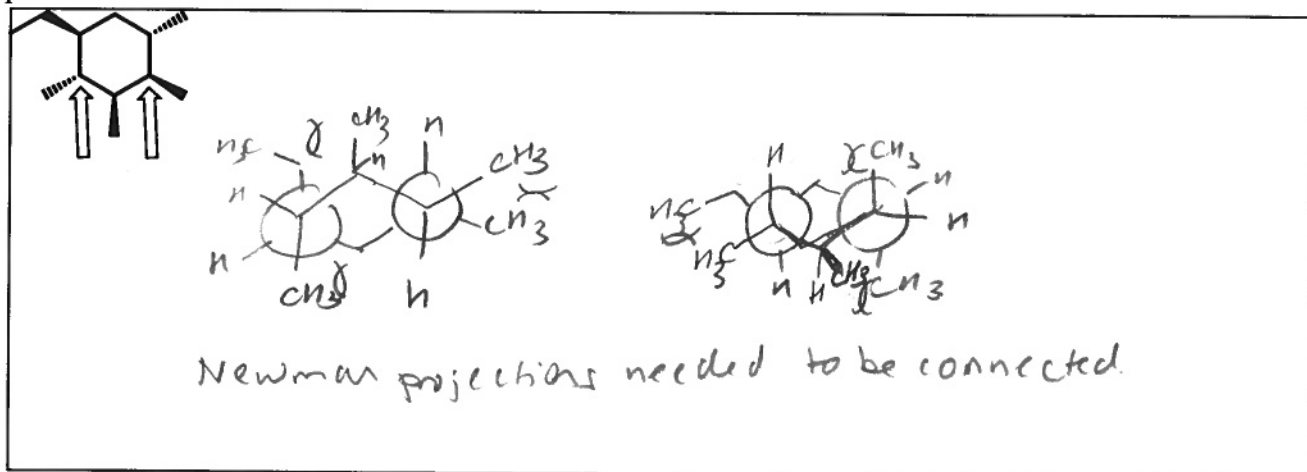 CH3 H
H3C H CH3
H CH3
H
CH3 H
H CH3
H
H3C H
H3C
H H CH3 CH3
Newman projections needed to be connected.